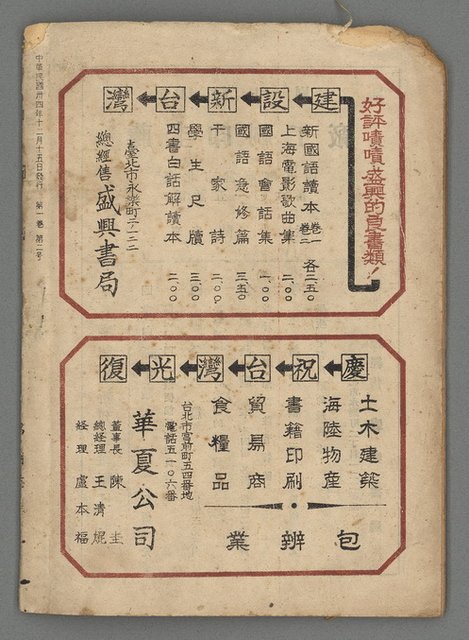 好評嘖嘖盛興的良書類！
建設新台灣
新國語讀本 卷一 卷二 各三.五〇
上海電影歌曲集 二.〇〇
國語會話集 二.〇〇
國語急修篇 三.五〇
千家詩 二.〇〇
學生尺牘 三.〇〇
四書白話解讀本 二.〇〇
臺北市永樂町
總經售 盛興書局
中華民國卅四年十二月十五日發行 第一卷 第二号
慶祝台灣光復
土木建築
海陸物產
書籍印刷
貿易商
食糧品
包辦業
台北市宮前町五四番地
電話五一〇六番
華夏公司
董事長 陳圭
總經理 王清焜
經理 盧本福